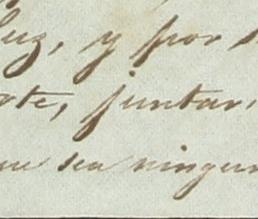 luz, y por
ote, juntar
que sea ningun